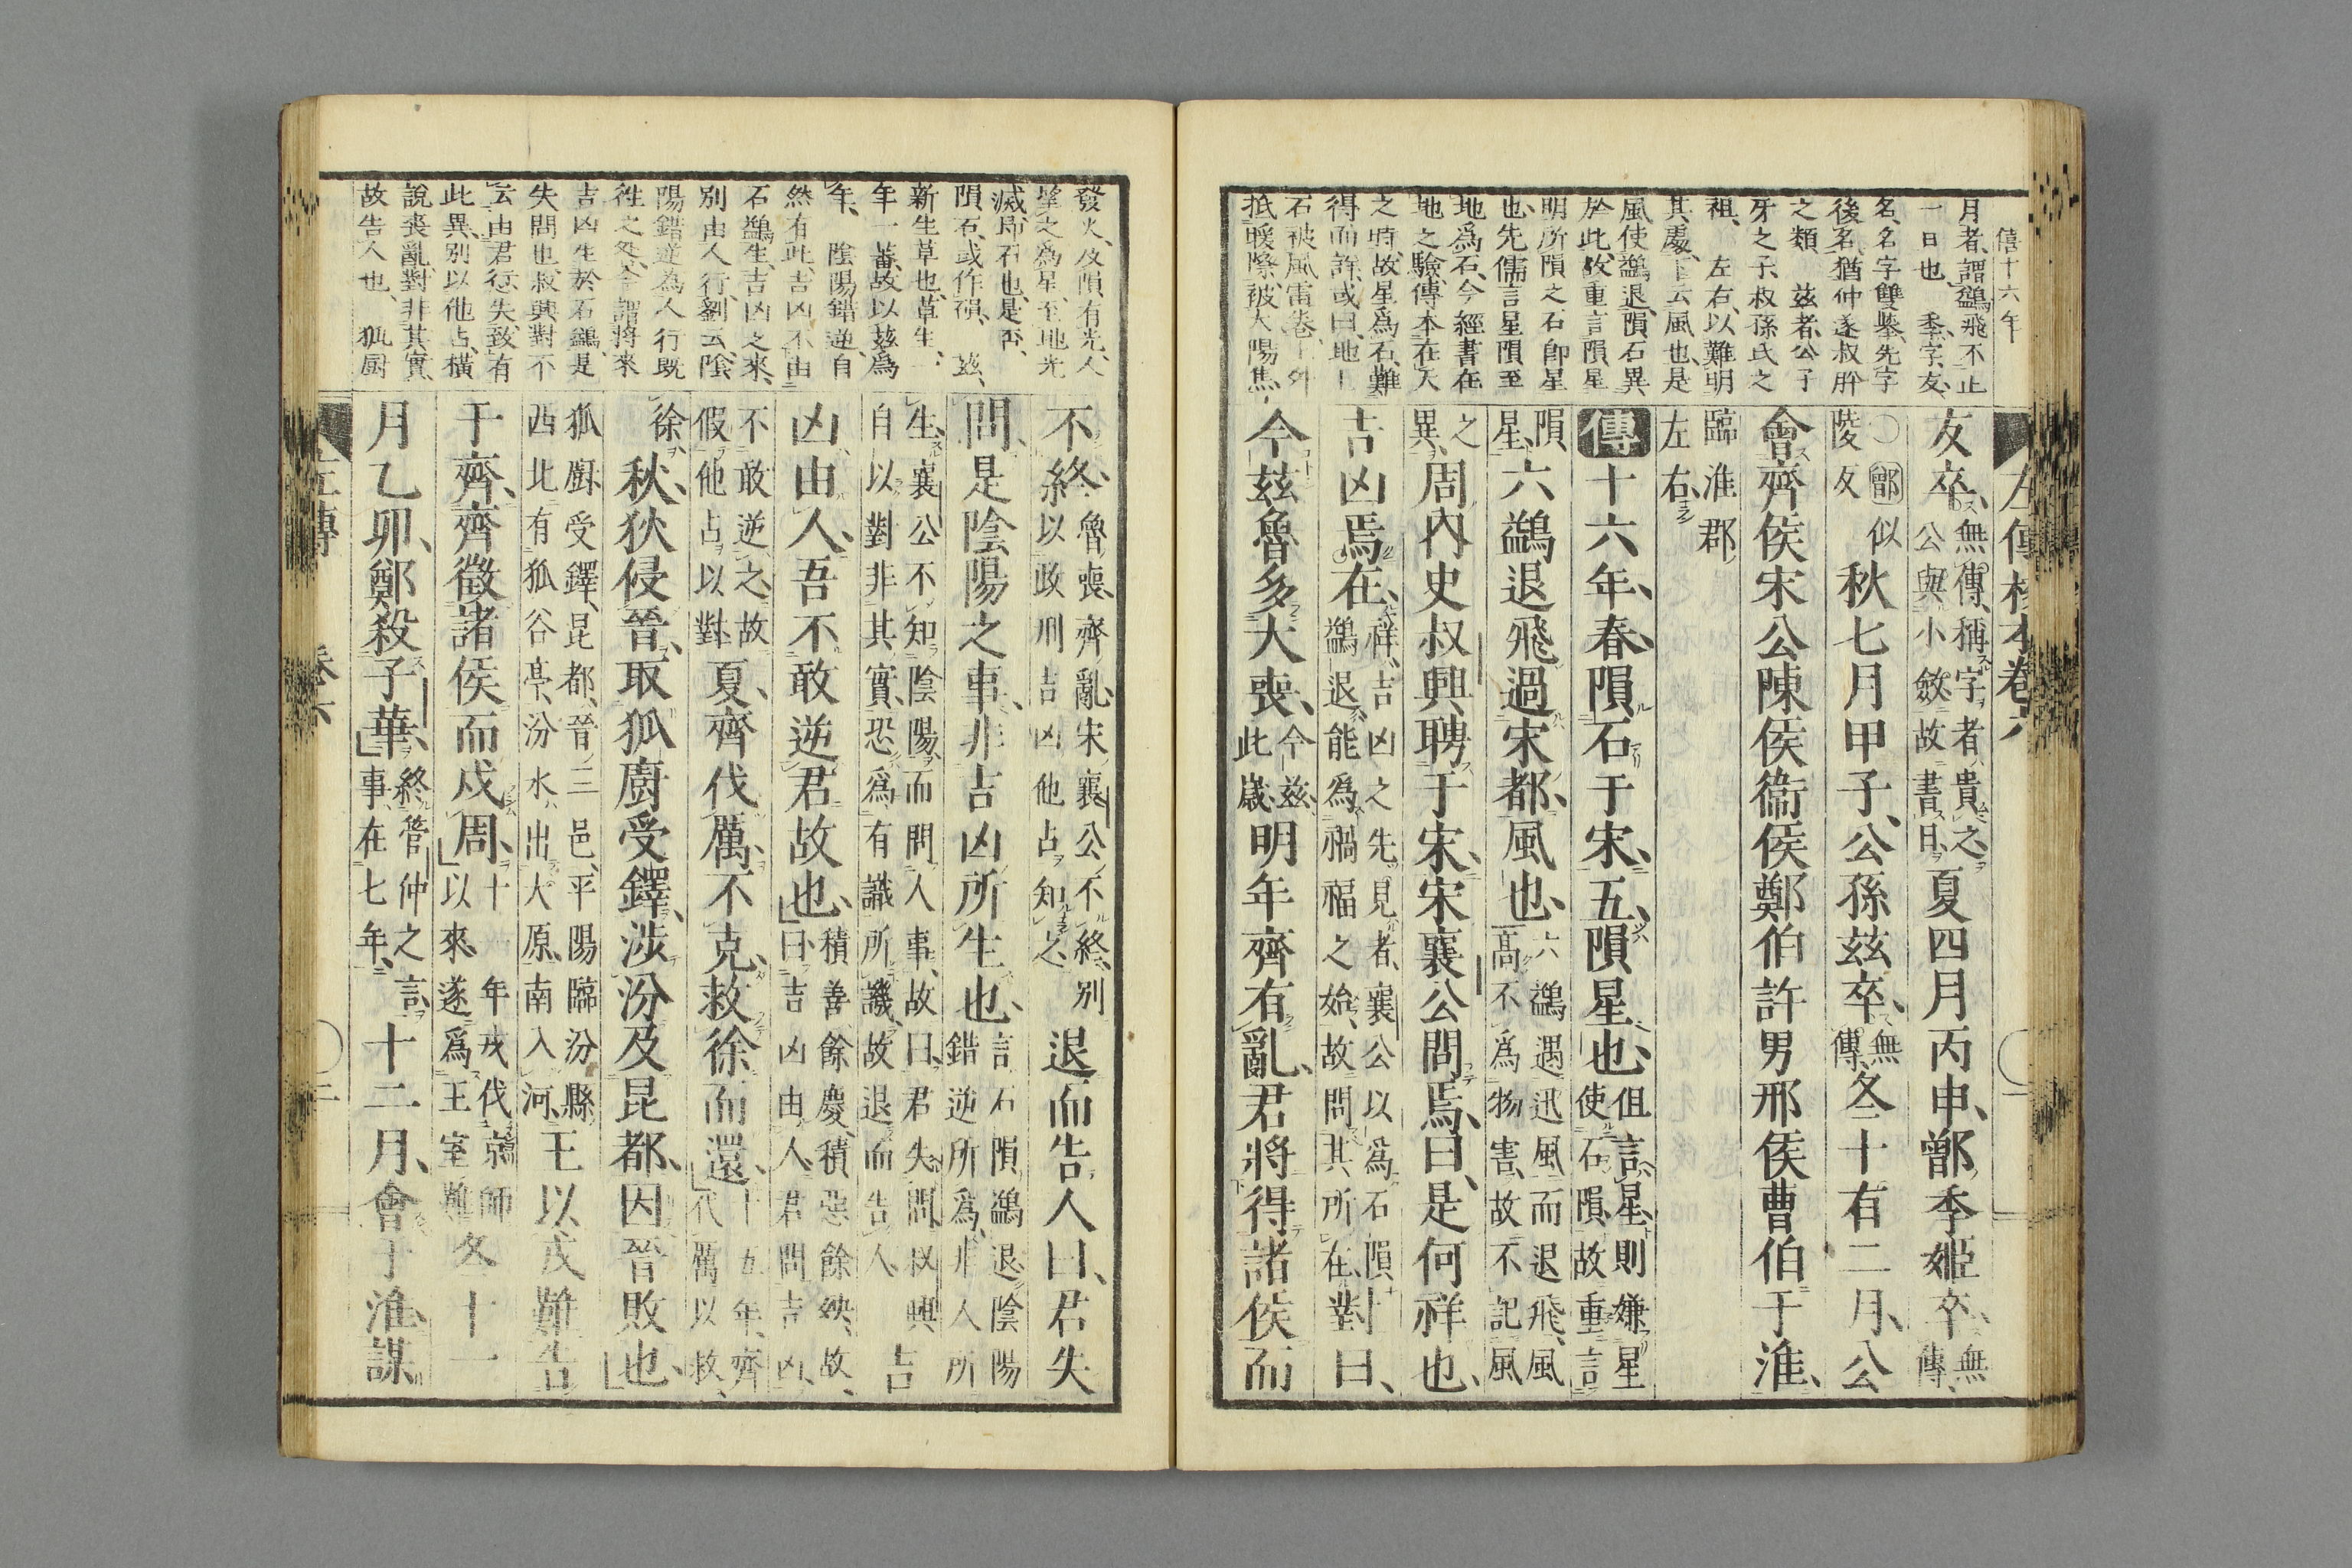 左傳校本卷六
僖十六年
月者、謂鷁飛不止
一日也、　季字、友、
名、名字雙舉、先字
後名、猶仲遂叔肸
之類　茲者、公子
牙之子、叔孫氏之
祖、　左右、以難明
其處、云風也、是
風使鷁退、隕石異
於此、故重言隕星
明所隕之石卽星
也、先儒言星隕至
地爲石、今經書在
地之驗、傳本在天
之時、故星爲石、難
得而詳、或曰、地上
石被風雷卷上、外
抵暖際、被大陽焦、
友卒、無傳、稱字者、貴之、公與小斂、故書日、夏四月丙申、鄫季姬卒、無傳、
〇鄫似陵反　秋七月甲子、公孫茲卒、無傳、冬十有二月、公
會齊侯宋公陳侯衞侯鄭伯許男邢侯曹伯于淮、
臨淮郡左右、
傳十六年、春、隕石于宋、五、隕星也、但言星、則嫌星使石隕、故重言
隕星、六鷁退飛過宋都、風也、六鷁遇迅風而退飛、風高不爲物害、故不記風
之異、周內史叔興聘于宋、宋襄公問焉、曰、是何祥也、
吉凶焉在、祥、吉凶之先見者、襄公以爲石隕鷁退、能爲禍福之始、故問其所在、對曰、
今茲魯多大喪、今茲、此歲、明年齊有亂、君將得諸侯而
發火、及隕、有光、人
望之爲星、至地光
滅、卽石也、是否、
隕石、或作磒、　茲、
新生草也、草生一
年一蕃、故以茲爲
年、　陰陽錯逆、自
然有此、吉凶不由
石鷁生、吉凶之來、
別由人行、劉云、陰
陽錯逆爲人行既
往之咎、今謂將來
吉凶生於石鷁、是
失問也、叔興對不
云由君行失致有
此異、別以他占、橫
說喪亂、對非其實、
故告人也、　狐廚
不終、魯喪、齊亂、宋襄公不終、別以政刑吉凶他占知之、退而告人曰、君失
問、是陰陽之事、非吉凶所生也、言石隕鷁退、陰陽錯逆所爲、非人所
生、襄公不知陰陽而問人事、故曰、君失問、叔興自以對非其實、恐爲有識所譏、故退而告人、吉
凶由人、吾不敢逆君故也、積善餘慶、積惡餘殃、故曰、吉凶由人、君問吉凶、
不敢逆之、故假他占以對、夏、齊伐厲、不克、救徐而還、十五年、齊伐厲以救
徐、秋、狄侵晉、取狐廚受鐸、涉汾及昆都、因晉敗也、
狐廚、受鐸、昆都、晉三邑、平陽臨汾縣西北有狐谷亭、汾水出大原、南入河、王以戎難告
于齊、齊徵諸侯而戍周、十一年戎伐京師以來、遂爲王室難、冬、十一
月乙卯、鄭殺子華、終管仲之言、事在七年、十二月、會于淮、謀
左傳　卷六　二